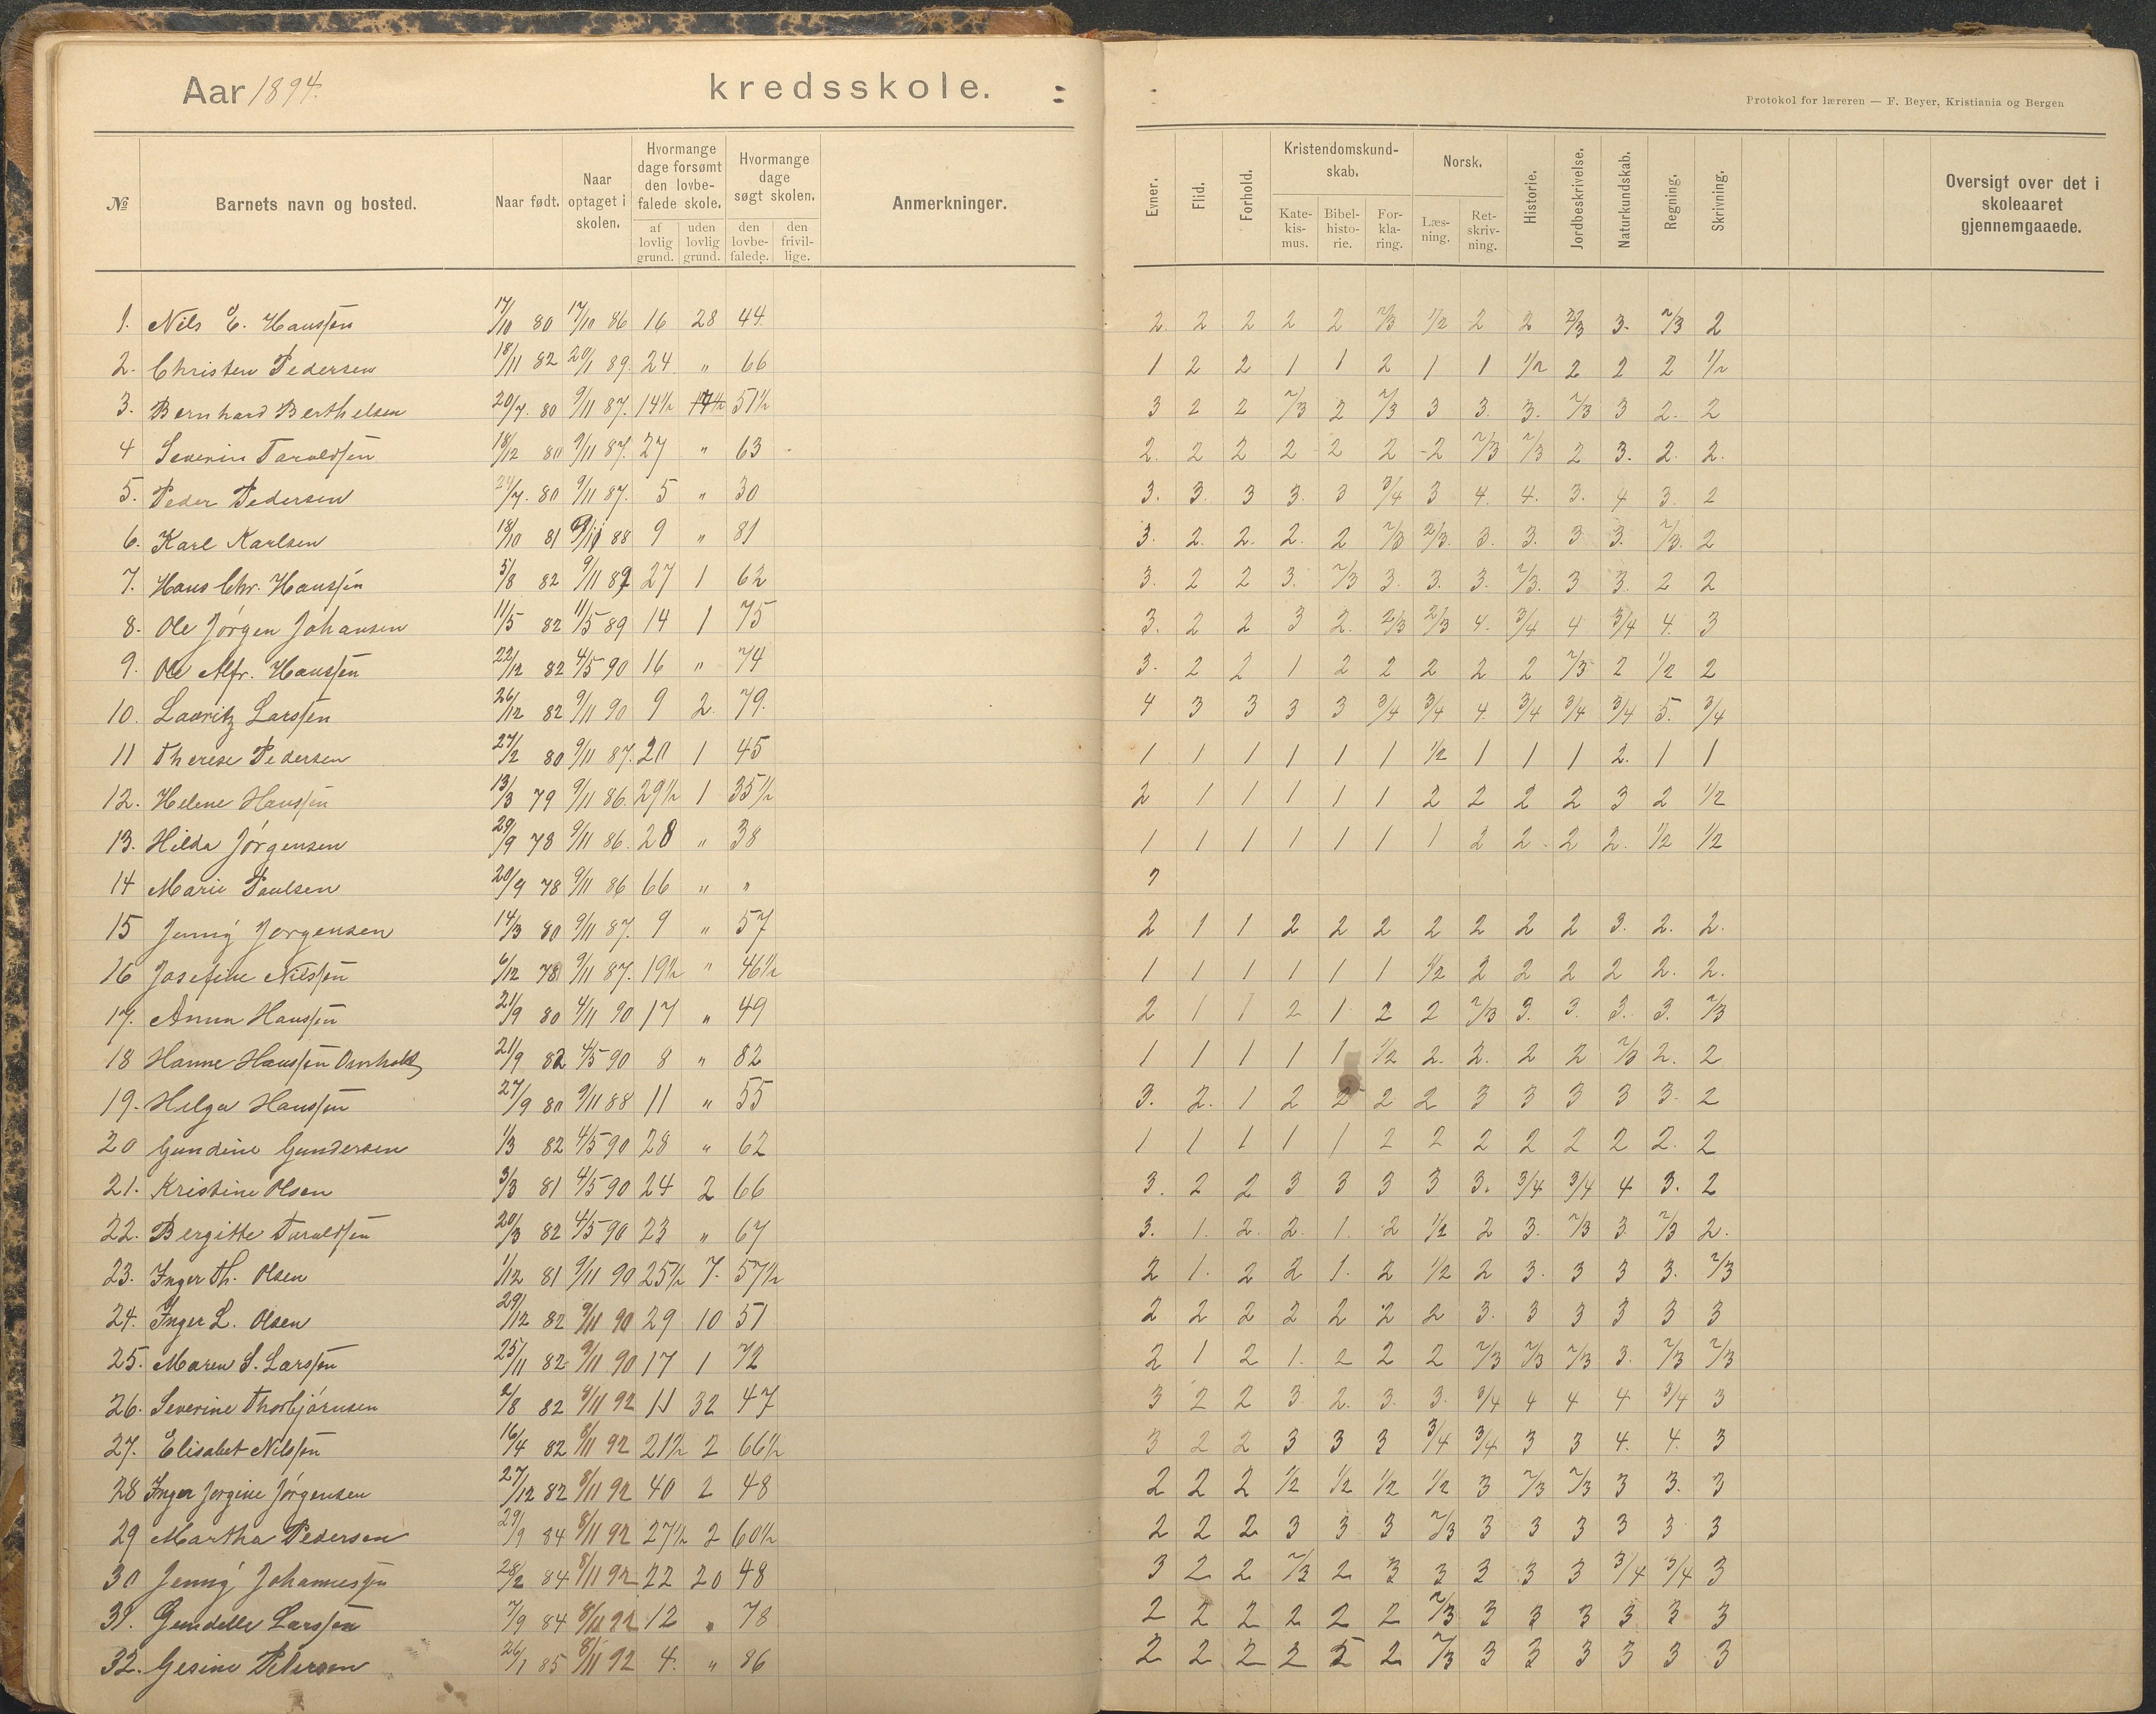 Aar 1894. kredsskole.
Protokol for læreren — F. Beyer, Kristiania og Bergen
№ Barnets navn og bosted. Naar født. Naar optaget i skolen. Hvormange dage forsømt den lovbefalede skole. af lovlig grund. uden lovlig grund. Hvormange dage søgt skolen. den lovbefalede. den frivillige. Anmerkninger. Evner. Flid. Forhold. Kristendomskundskab. Katekismus. Bibelhistorie. Forklaring. Norsk. Læsning. Retskrivning. Historie. Jordbeskrivelse. Naturkundskab. Regning. Skrivning. Oversigt over det i skoleaaret gjennemgaaede.
1. Nils E. Hanssen 17/10 80 17/10 86 16 28 44 2 2 2 2 2 2/3 1/2 2 2 2/3 3. 2/3 2
2. Christen Pedersen 18/11 82 20/1 89. 24. " 66 1 2 2 1 1 2 1 1 1/2 2 2 2 1/2
3. Bernhard Berthelsen 20/7. 80 9/11 87. 14½ 51½ 3 2 2 2/3 2 2/3 3 3. 3. 2/3 3 2. 2
4 Severin Taraldsen 18/12 80 9/11 87. 27 " 63 2. 2 2 2 2 2 2 2/3 2/3 2 3. 2. 2.
5. Peder Pedersen 80 9/11 87. 5 " 30 3. 3. 3 3. 3 3/4 3 4. 4. 3. 4 3. 2
6. Karl Karlsen 18/10 81 88 9 " 81 3. 2. 2. 2. 2 2/3 2/3. 3. 3. 3 3. 2/3. 2
7. Hans Chr. Hanssen 5/8 82 9/11 89 27 1 62 3. 2 2 3. 2/3 3. 3. 3. 2/3. 3 3. 2 2
8. Ole Jørgen Johansen 11/5 82 11/5 89 14 1 75 3. 2 2 3 2. 2/3 2/3 4. 3/4 4 3/4 4. 3
9. Ole Alfr. Hanssen 22/12 82 4/5 90 16 " 74 3. 2 2 1 2 2 2 2 2 2/3 2 1/2 2
10. Lauritz Larssen 26/12 82 9/11 90 9 2 79. 4 3 3 3 3 3/4 3/4 4. 3/4 3/4 3/4 5. 3/4
11 Therese Pedersen 27/2 80 9/11 87. 20 1 45 1 1 1 1 1 1 1/2 1 1 1 2. 1 1
12. Helene Hanssen 13/3 79 9/11 86. 29½ 1 35½ 2 1 1 1 1 1 2 2 2 2 3 2 1/2
13. Hilda Jørgensen 29/9 78 9/11 86. 28 " 38 1 1 1 1 1 1 1 2 2. 2 2. 1/2 1/2
14 Marie Paulsen 20/9 78 9/11 86 66 " "
15 Jenny Jørgensen 14/3 80 9/11 87. 9 " 57 2 1 1 2 2 2 2 2 2 2 3. 2. 2.
16 Josefine Nilssen 6/12 78 9/11 87. 19½ " 46½ 1 1 1 1 1 1 1/2 2 2 2 2 2. 2.
17. Anna Hanssen 21/9 80 4/11 90 17 " 49 2 1 1 2 1 2 2 2/3 3. 3. 3. 3. 2/3
18 Hanne Hanssen 21/9 82 4/5 90 8 " 82 1 1 1 1 1 1/2 2. 2. 2 2 2/3 2. 2
19. Helga Hanssen 27/9 80 9/11 88 11 " 55 3. 2. 1 2 2 2 2 3 3 3 3 3. 2
20 Gundine Gundersen 1/3 82 4/5 90 28 " 62 1 1 1 1 1 2 2 2 2 2 2 2. 2
21. Kristine Olsen 3/3 81 4/5 90 24 2 66 3. 2 2 3 3 3 3 3. 3/4 3/4 4 3. 2
22. Bergitte Taraldsen 20/3 82 4/5 90 23 " 67 3. 1. 2. 2. 1. 2 1/2 2 3. 2/3 3. 2/3 2.
23. Inger Th. Olsen 1/12 81 9/11 90 25½ 7. 57½ 2 1. 2 2 1. 2 1/2 2 3. 3 3 3. 2/3
24. Inger L. Olsen 29/12 82 9/11 90 29 10 51 2 2 2 2 2 2 2 3. 3 3 3 3 3
25. Maren S. Larssen 25/11 82 9/11 90 17 1 72 2 1 2 1. 2 2 2 2/3 2/3 2/3 3. 2/3 2/3
26. Severine Thorbjørnsen 2/8 82 8/11 92 11 32 47 3 2 2 3 2. 3. 3. 3/4 4 4 4 3/4 3
27. Elisabet Nilssen 16/4 82 8/11 92 21½ 2 66½ 3 2 2 3 3 3 3/4 3/4 3 3 4. 4. 3
28 Inger Jørgine Jørgensen 27/12 82 8/11 92 40 2 48 2 2 2 1/2 1/2 1/2 1/2 3 2/3 2/3 3 3. 3
29 Martha Pedersen 29/9 84 8/11 92 27½ 2 60½ 2 2 2 3 3 3 2/3 3 3 3 3 3 3
30 Jenny Johannessen 28/2 84 8/11 92 22 20 48 3 2 2 2/3 2 3 3 3 3 3 3/4 3/4 3
31. Gundelle Larssen 7/9 84 8/11 92 12 " 78 2 2 2 2 2 2 2/3 3 3 3 3 3 3
32. Gesine Petersen 26/1 85 8/11 92 4. " 86 2 2 2 2 2 2/3 3 3 3 3 3 3